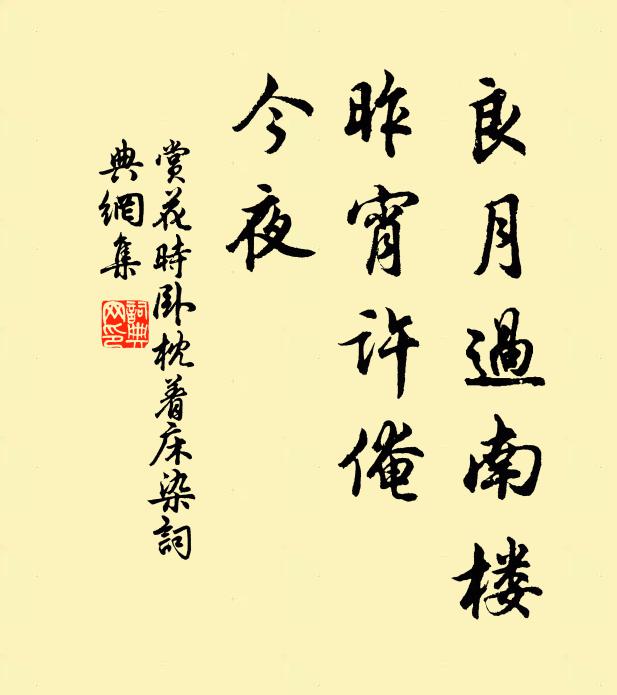 良月過南楼
昨宵許俺
今夜
賞花時卧枕着床染詞
典網集
詞典网印